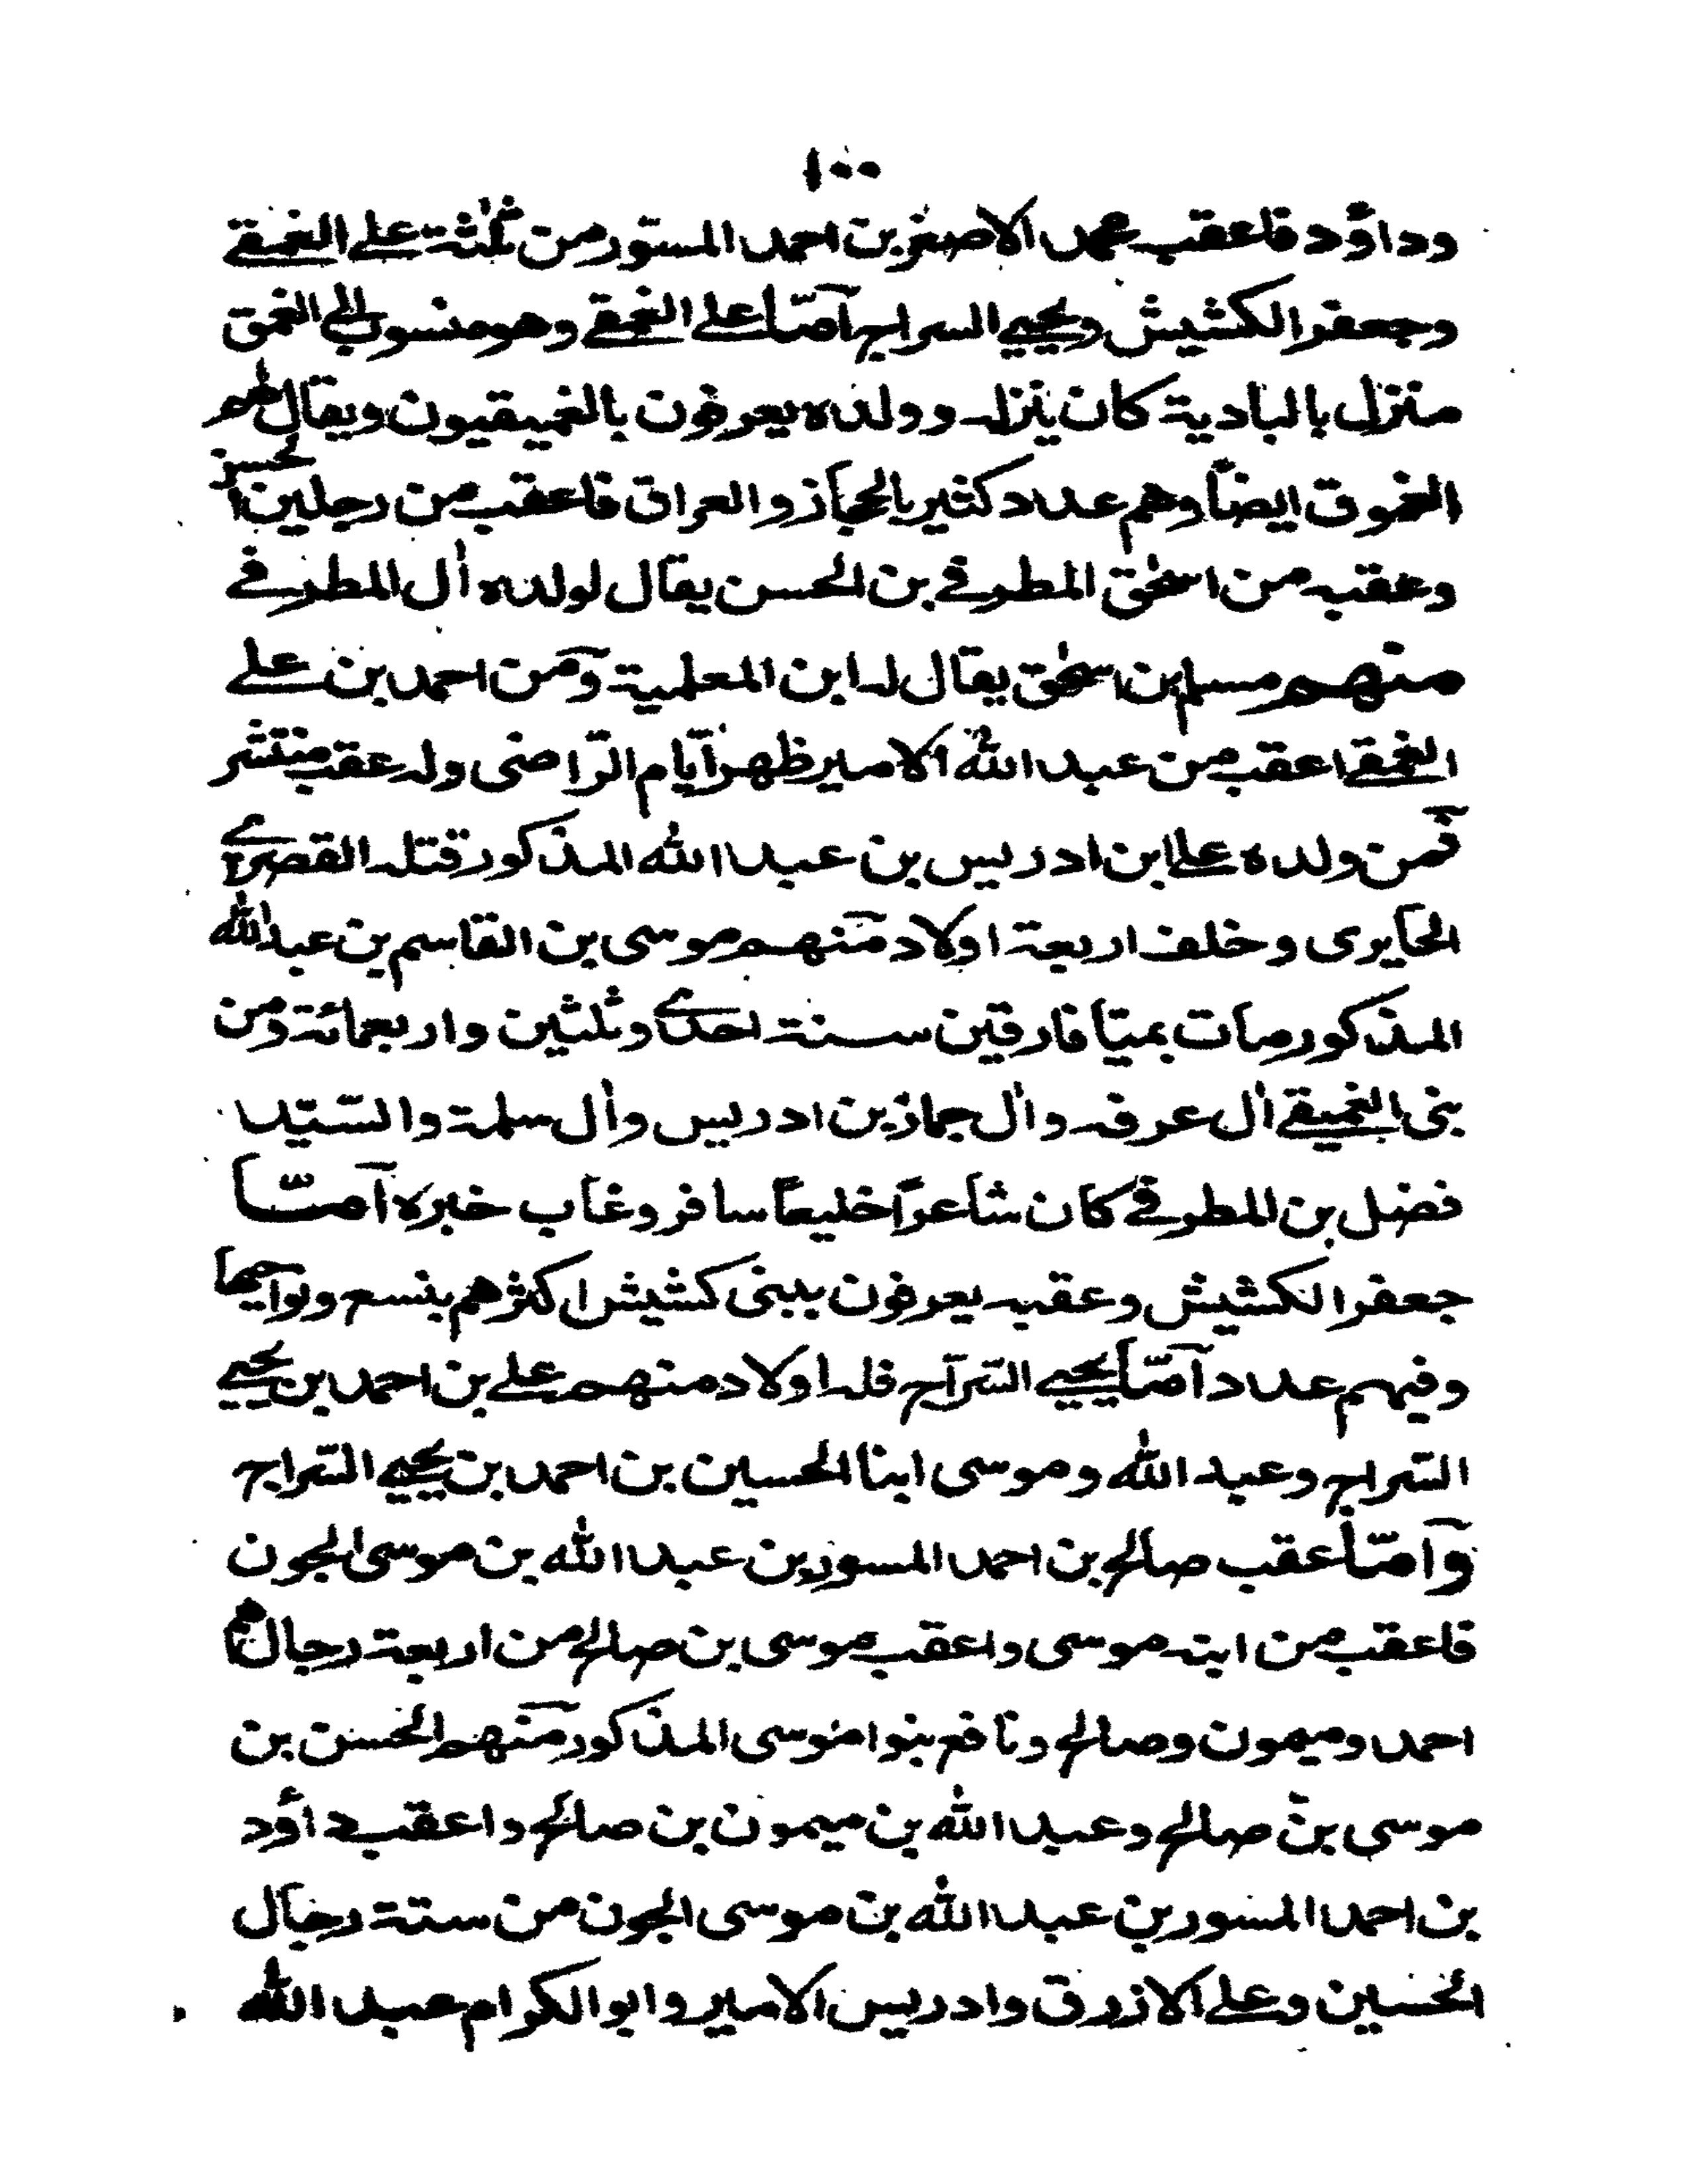 ١٠٠
وداؤد فاعقب محمد الاصغر بن احمد المستور من ثلثة علي الغمقے
وجعفر الكشيش ويحيي السراج امّا علي الغمقے وهو منسوب الي الغمق
منزل بالبادية كان ينزله وولده يعرفون بالغميقيون ويقال لهم
الغموق ايضاً وهم عدد كثير بالحجاز والعراق فاعقب من رجلين الحسن
وعقبه من اسحٰق المطرفے بن الحسن يقال لولده اٰل المطرفے
منهم مسلم بن اسحٰق يقال له ابن المعلمية ومن احمد بن علي
الغمقے اعقب من عبد الله الامير ظهر ايّام الرّاضى وله عقب منتشر
فمن ولده علي ابن ادريس بن عبد الله المذكور قتله القصرے
الحايرى وخلف اربعة اولاد منهم موسى بن القاسم بن عبد الله
المذكور مات بميّا فارقين سنة احدے وثلثين واربعمائة ومن
بنى الغميقے اٰل عرفه واٰل جماز بن ادريس واٰل سلمة والسّيّد
فضل بن المطرفے كان شاعراً خليعاً سافر وغاب خبره امّا
جعفر الكشيش وعقبه يعرفون ببنى كشيش اكثرهم بينبع ونواحيها
وفيهم عدد امّا يحيي السّراج فله اولاد منهم علي بن احمد بن يحيي
السّراج وعبد الله وموسى ابنا الحسين بن احمد بن يحيي السّراج
وامّا عقب صالح بن احمد المسور بن عبد الله بن موسى الجون
فاعقب من ابنه موسى واعقب موسى بن صالح من اربعة رجال هم
احمد وميمون وصالح ونافع بنوا موسى المذكور منهم الحسن بن
موسى بن صالح وعبد الله بن ميمون بن صالح واعقب داؤد
بن احمد المسور بن عبد الله بن موسى الجون من ستة رجال
الحسين وعلي الازرق وادريس الامير وابو الكرام عبد الله